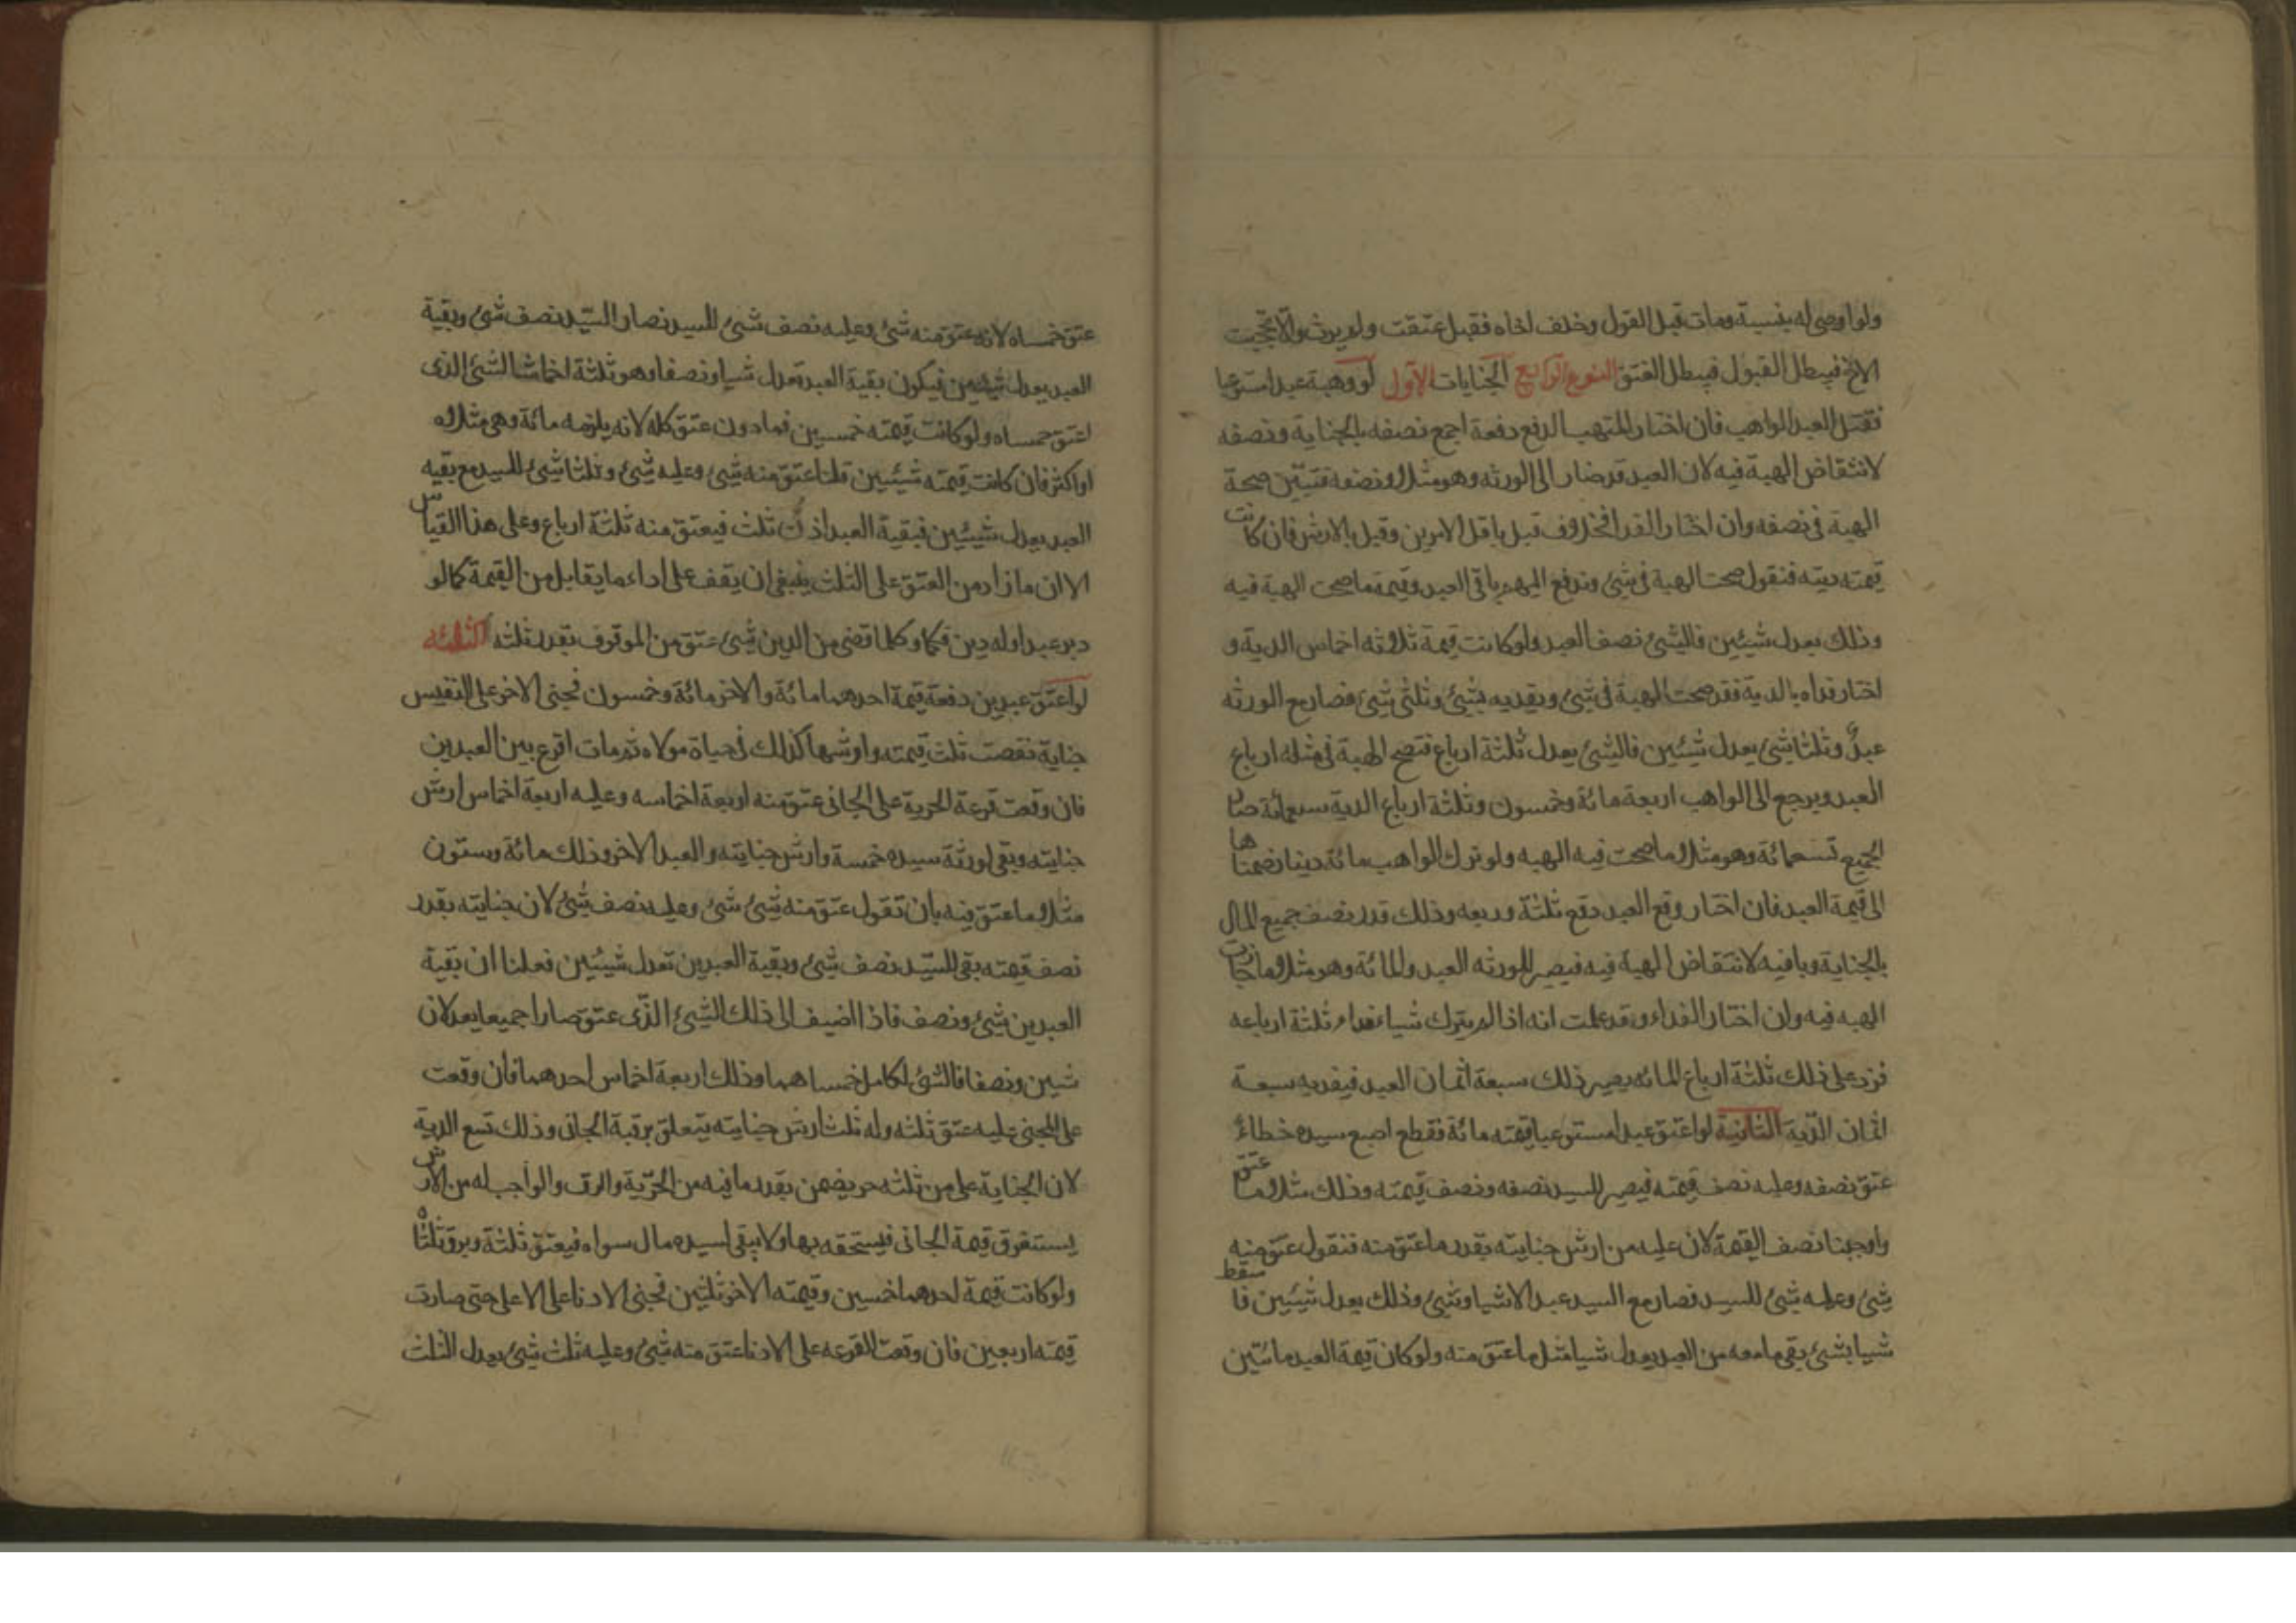 ولو اوصى له بنسبة ومات قبل القول وخلف اخاه فقبل عتقت ولم يرث والا لحجبت
الاخ فيبطل القبول فيبطل العتق النوع الرابع الجنايات الاول لو وهبة عبدا مستوعبا
فقتل العبد الواهب فان اختار المتهب الدفع دفعة اجمع نصفه بالجناية ونصفه
لانتقاض الهبة فيه لان العبد قد صار الى الورثه وهو مثلا ونصفه فتبين صحة
الهبة فى نصفه وان اختار الفدا فخلاف قيل باقل الامرين وقيل بالارش فان كانت
قيمته ديته فنقول صحت الهبة فى شئ وتدفع اليهم باقى العبد وقيمة ما صحت الهبة فيه
وذلك يعدل شيئين فالشئ نصف العبد ولو كانت قيمة ثلاثه اخماس الدية و
اختار فداه بالدية فقد صحت الهبة فى شئ ويفديه بشئ وثلثى شئ فصار مع الورثه
عبد وثلثا شئ يعدل شيئين فالشئ يعدل ثلثة ارباع فتصح الهبة فى مثله ارباع
العبد ويرجع الى الواهب اربعة مائة وخمسون وثلثة ارباع الدية سبعمائة صار
الجميع تسعمائة وهو مثلا ما صحت فيه الهبه ولو ترك الواهب مائة دينار ضممناها
الى قيمة العبد فان اختار دفع العبد دفع ثلثة وربعه وذلك قدر نصف جميع المال
بالجناية وباقيه لانتقاض الهبة فيه فيصير للورثه العبد والمائة وهو مثلا ما جازت
الهبه فيه وان اختار الفداء وقد علمت انه اذا لم يترك شياء فداء ثلثة ارباعه
فزد على ذلك ثلثة ارباع المائه يصير ذلك سبعة اثمان العبد فيفديه سبعة
اثمان الدية الثانية لو اعتق عبدا مستوعبا قيمته مائة فقطع اصبع سيده خطاء
عتق نصفه وعليه نصف قيمته فيصير للسيد نصفه ونصف قيمته وذلك مثلا ما عتق
واوجبنا نصف القيمة لان عليه من ارش جنايته بقدر ما عتق منه فنقول عتق منه
شئ وعليه شئ للسيد فصار مع السيد عبد الا شيا وشئ وذلك يعدل شيئين فاسقط
شيا بشئ بقى ما معه من العبد يعدل شيا مثل ما عتق منه ولو كان قيمة العبد مائتين
عتق خمساه لانه عتق منه شئ وعليه نصف شئ للسيد فصار السيد نصف شئ وبقية
العبد يعدل شيئين فيكون بقية العبد تعدل شيا ونصفا وهو ثلثة اخماشا الشئ الذى
اعتق خمساه ولو كانت قيمته خمسين فما دون عتق كله لانه يلزمه مائة وهى مثلاه
او اكثر فان كانت قيمته شيئين قلنا عتق منه شئ وعليه شئ وثلثا شئ للسيد مع بقيه
العبد يعدل شيئين فبقية العبد اذن ثلث فيعتق منه ثلثة ارباع وعلى هذا القياس
الا ان ما زاد من العتق على الثلث ينبغى ان يقف على اداء ما يقابل من القيمة كما لو
دبر عبدا وله دين فكما وكلما قضى من الدين شئ عتق من الموقوف بقدر ثلثه الثالثه
لو اعتق عبدين دفعة قيمة احدهما مائة والاخر مائة وخمسون فجنى الاخر على النفيس
جناية نقصت ثلث قيمته وارشها كذلك فى حياة مولاه ثم مات اقرع بين العبدين
فان وقعت قرعة الحرية على الجانى عتق منه اربعة اخماسه وعليه اربعة اخماس ارش
جنايته وبقى لورثة سيده خمسة وارش جنايته والعبد الاخر وذلك مائة وستون
مثلا ما عتق فيه بان تقول عتق منه شئ شئ وعليه نصف شئ لان جنايته بقدر
نصف قيمته بقى للسيد نصف شئ وبقية العبدين تعدل شيئين فعلنا ان بقية
العبدين شئ ونصف فاذا اضيف الى ذلك الشئ الذى عتق صارا جميعا يعدلان
شيين ونصفا فالشئ الكامل خمساهما وذلك اربعة اخماس احدهما فان وقعت
على المجنى عليه عتق ثلثه وله ثلث ارش جنايته يتعلق برقبة الجانى وذلك تسع الدية
لان الجناية على من ثلثه حر يضمن بقدر ما فيه من الحرية والرق والواجب له من الارش
يستغرق قيمة الجانى فيستحقه بها ولا يبقى لسيده مال سواه فيعتق ثلثة ويرق ثلثاه
ولو كانت قيمة احدهما خمسين وقيمته الاخر ثلثين فجنى الادنا على الاعلى حتى صارت
قيمته اربعين فان وقعت القرعه على الادنا عتق منه شئ وعليه ثلث شئ يعدل الثلث